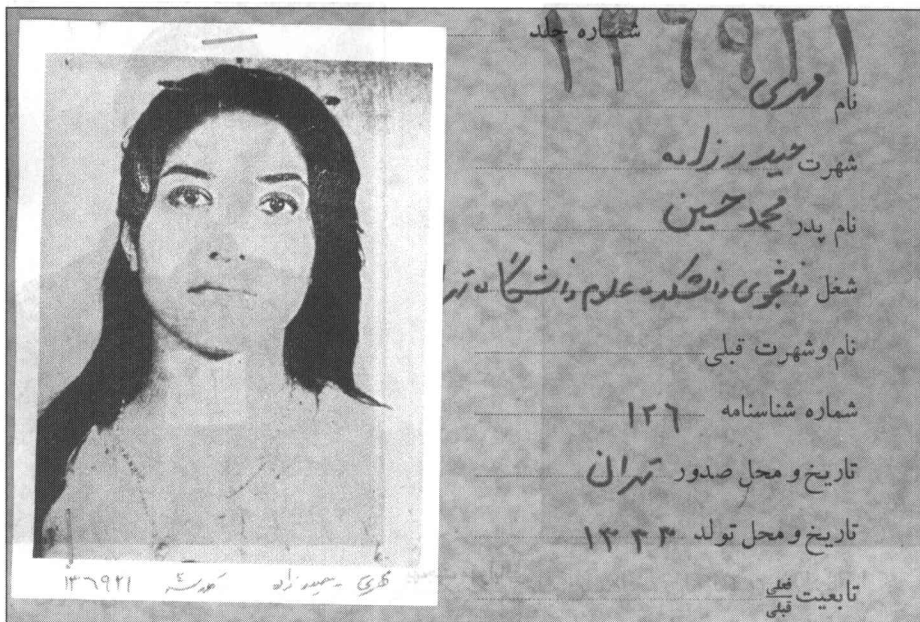 ۱۳۶۹۲۱
شماره جلد
نام مهری
شهرت حیدرزاده
نام پدر محمد حسین
شغل دانشجوی دانشکده علوم دانشگاه تهرا
نام و شهرت قبلی
شماره شناسنامه ۱۲۶
تاریخ و محل صدور تهران
تاریخ و محل تولد ۱۳۳۳
تابعیت فعلی
قبلی
مهری حیدرزاده ۱۳۶۹۲۱